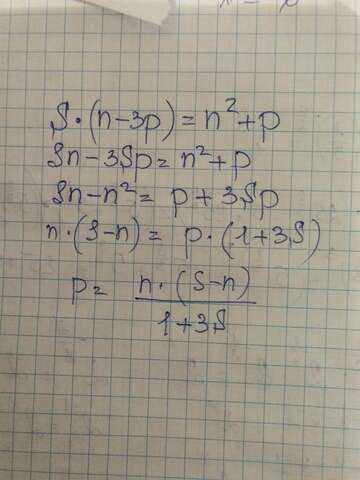 S·(n-3p)=n²+p
Sn-3Sp=n²+p
Sn-n²= p+3Sp
n·(S-n)= p·(1+3S)
p= n·(S-n)
1+3S